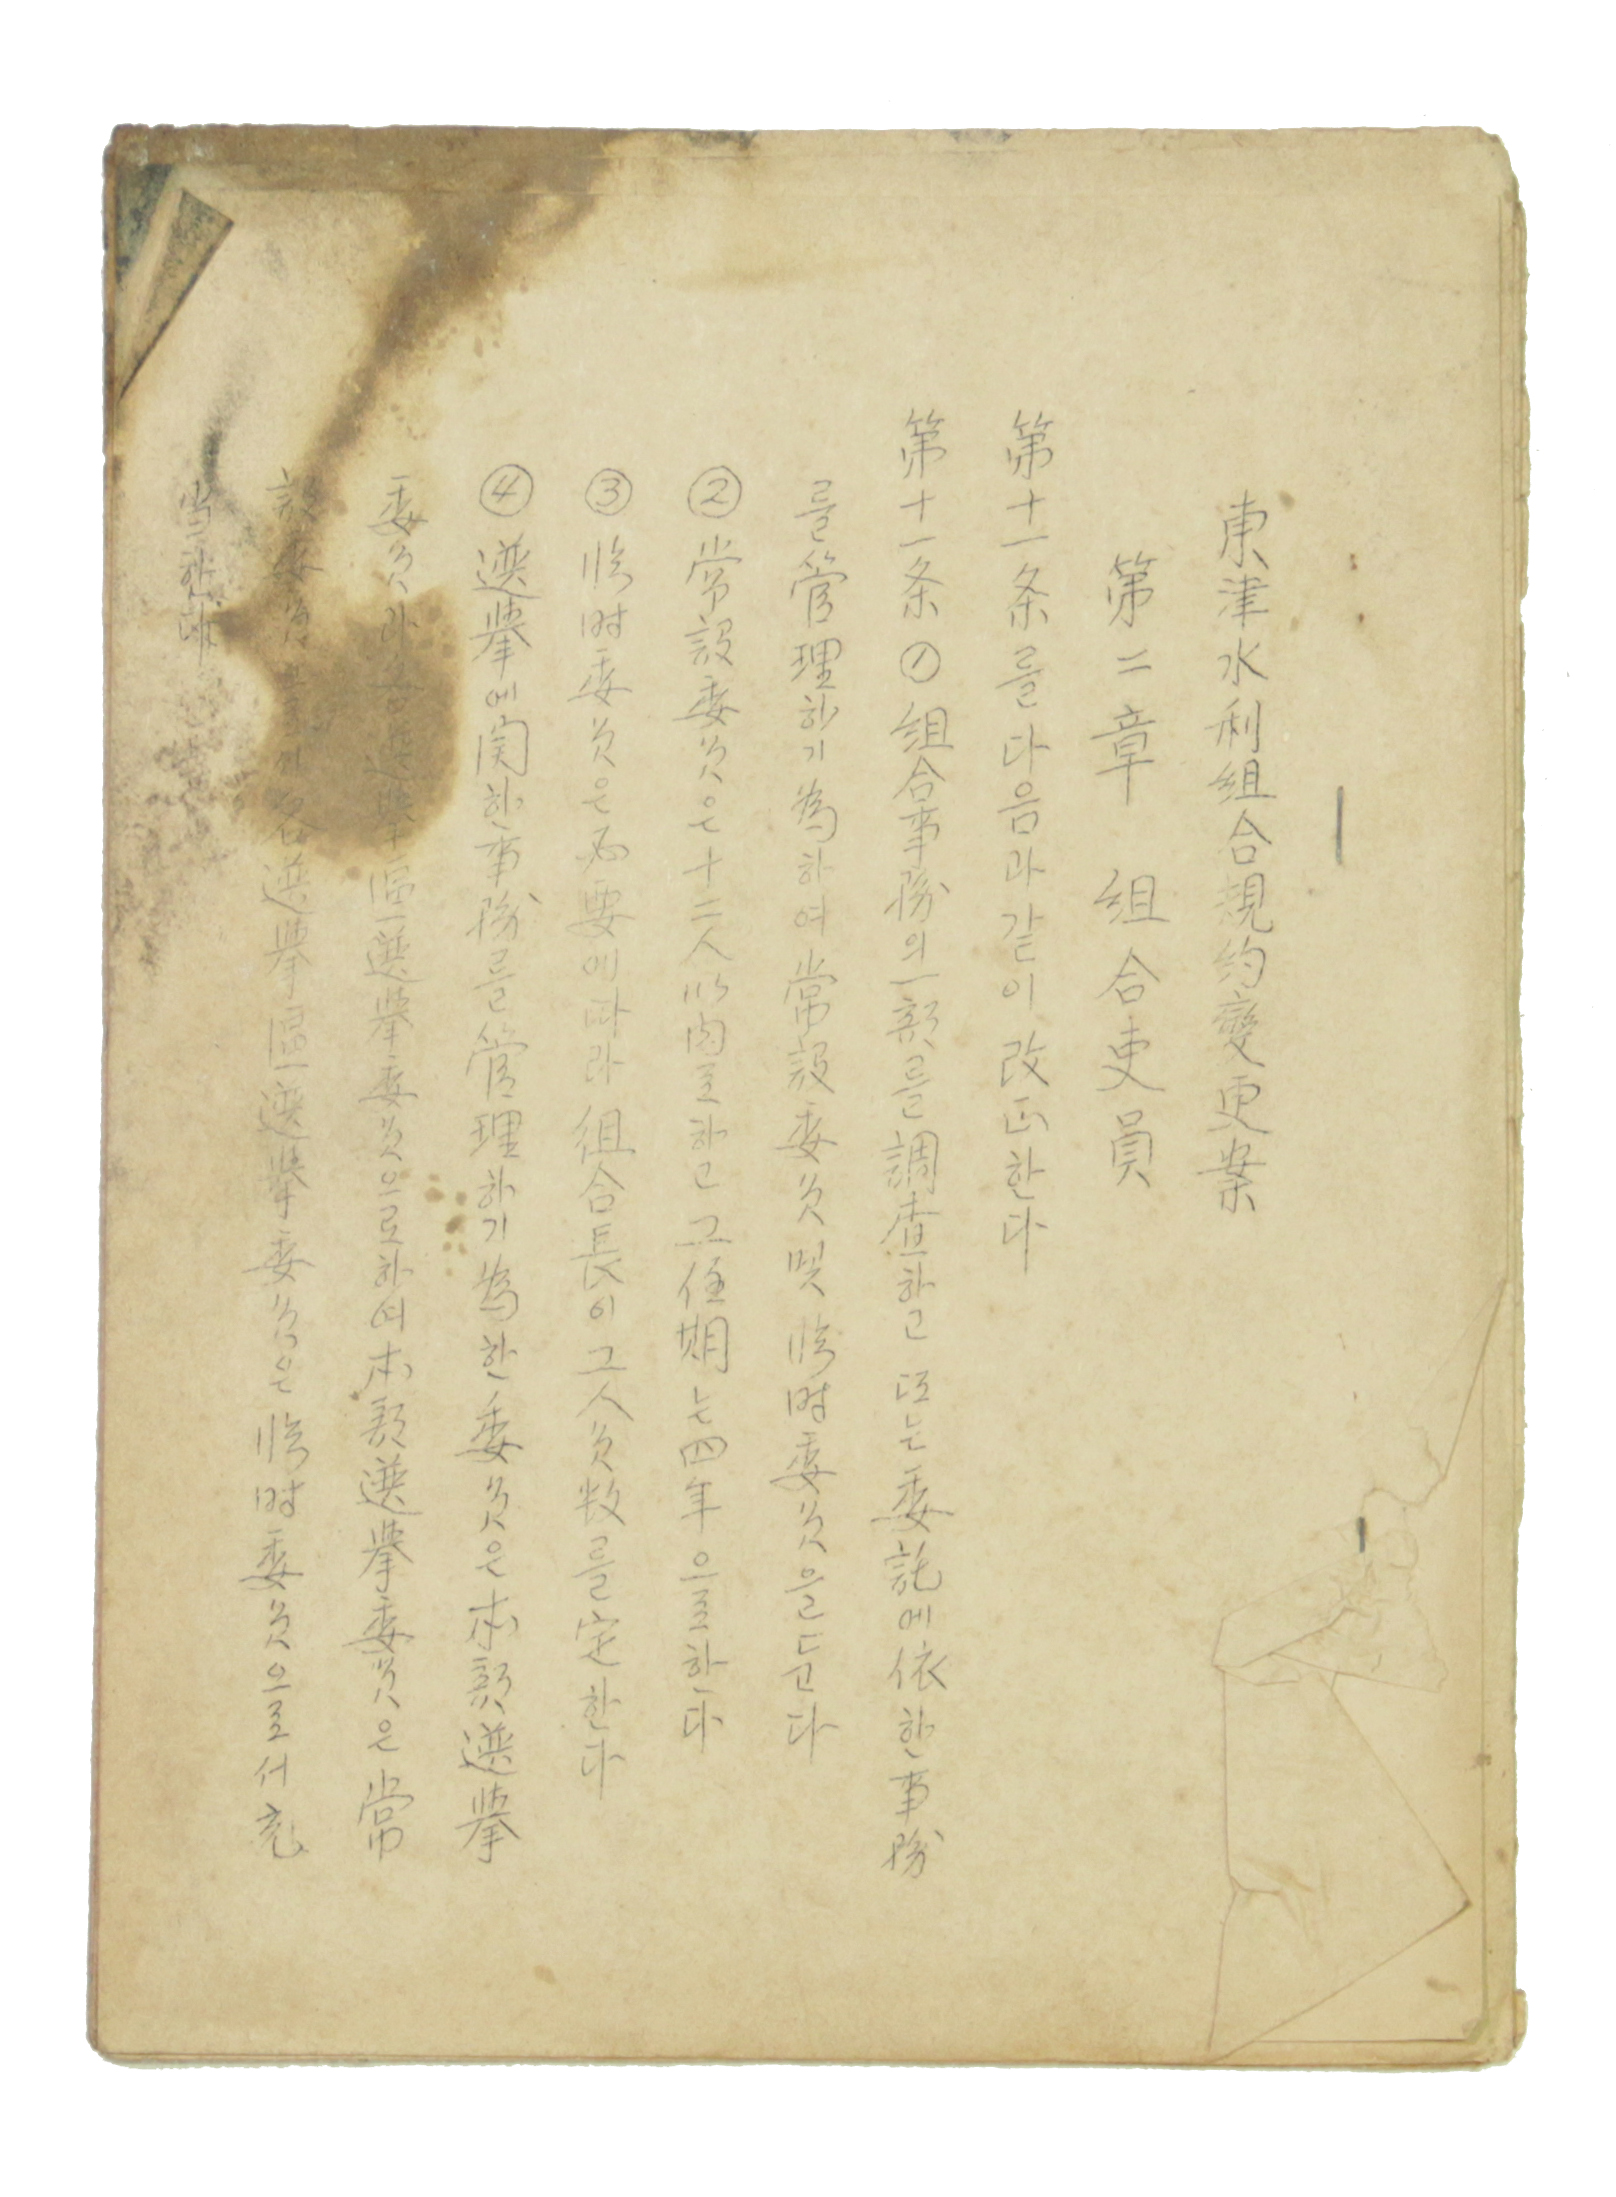 東津水利組合規約變更案
第二章 組合吏員
第十一条를 다음과 같이 改正한다
第十一条 ① 組合事務의 一部를 調査하고 또는 委託에 依한 事務
를 管理하기 為하여 常設委員 및 臨時委員을 둔다
② 常設委員은 十二人以內로 하고 그 任期는 四年으로 한다
③ 臨時委員은 必要에 따라 組合長이 그 人員数를 定한다
④ 選擧에 関한 事務를 管理하기 為한 委員은 本部選擧
委員과 各選擧區選擧委員으로 하여 本部選擧委員은 常
設委員으로서 各選擧區選擧委員은 臨時委員으로서 充
当한다